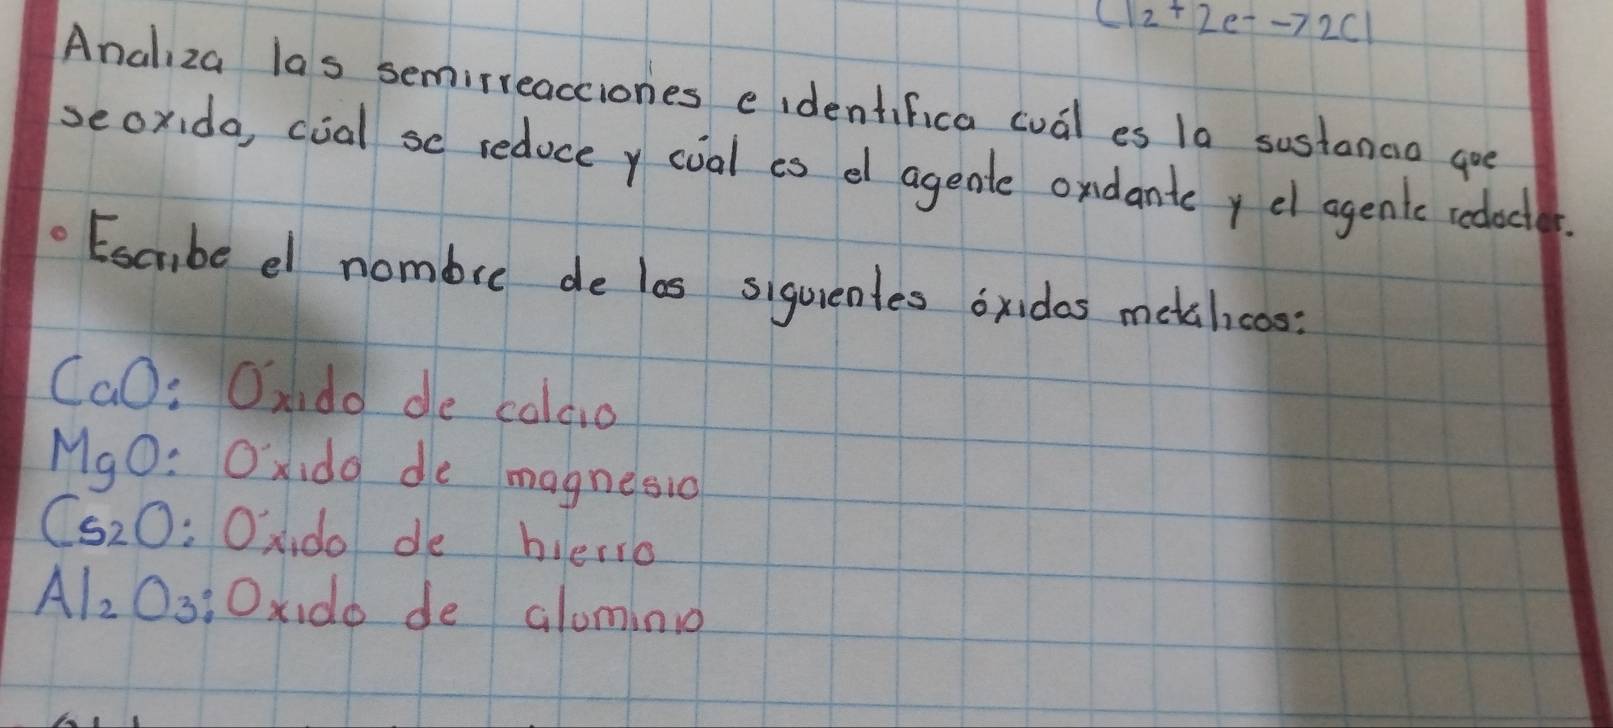 Cl2 + 2e- -> 2Cl
Analiza las semirreacciones e identifica cuál es la sustancia que
se oxida, cúal se reduce y cúal es el agente oxidante y el agente reductor.
• Escribe el nombre de los siguientes óxidos metálicos:
CaO: Óxido de calcio
MgO: Óxido de magnesio
Cs2O: Óxido de hierro
Al2O3: Oxido de aluminio